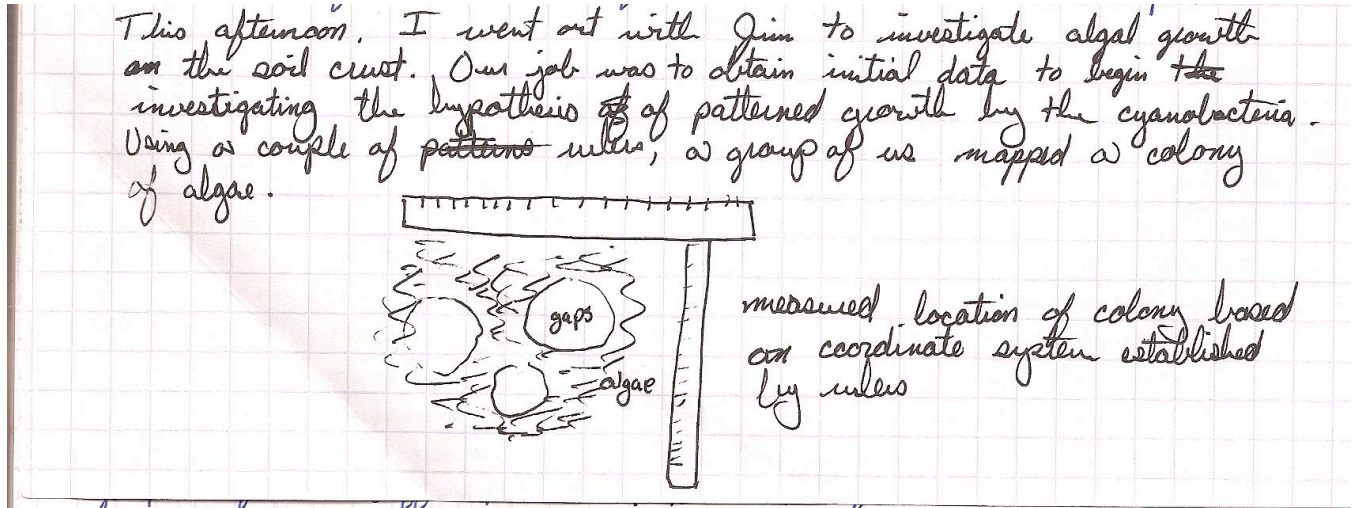 This afternoon, I went out with Jim to investigate algal growth
on the soil crust. Our job was to obtain initial data to begin the
investigating the hypothesis of of patterned growth by the cyanobacteria.
Using a couple of patterns rulers, a group of us mapped a colony
of algae.
gaps
algae
measured location of colony based
on coordinate system established
by rulers